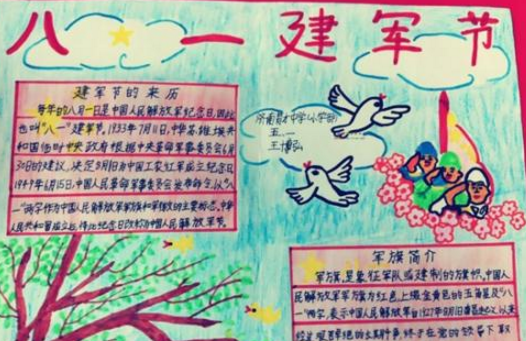 八一建军节
建军节的来历
每年的八月一日是中国人民解放军纪念日,因此
也叫“八一”建军节。1933年7月11日,中华苏维埃共
和国临时中央政府根据中央革命军事委员会6月
30日的建议,决定8月1日为中国工农红军成立纪念日
1949年6月15日,中国人民革命军事委员会发布命令,以“八
一”两字作为中国人民解放军军旗和军徽的主要标志。中华
人民共和国成立后,将此纪念日改称为中国人民解放军建军节。
济南育才中学(小学部)
五
王博弘
军旗简介
军旗,是象征军队或建制的旗帜,中国人
民解放军军旗为红色,上缀金黄色的五角星及“八
一”两字,表示中国人民解放军自1927年8月1日南昌起义以来
经过艰苦卓绝的斗争,终于在党的领导下取